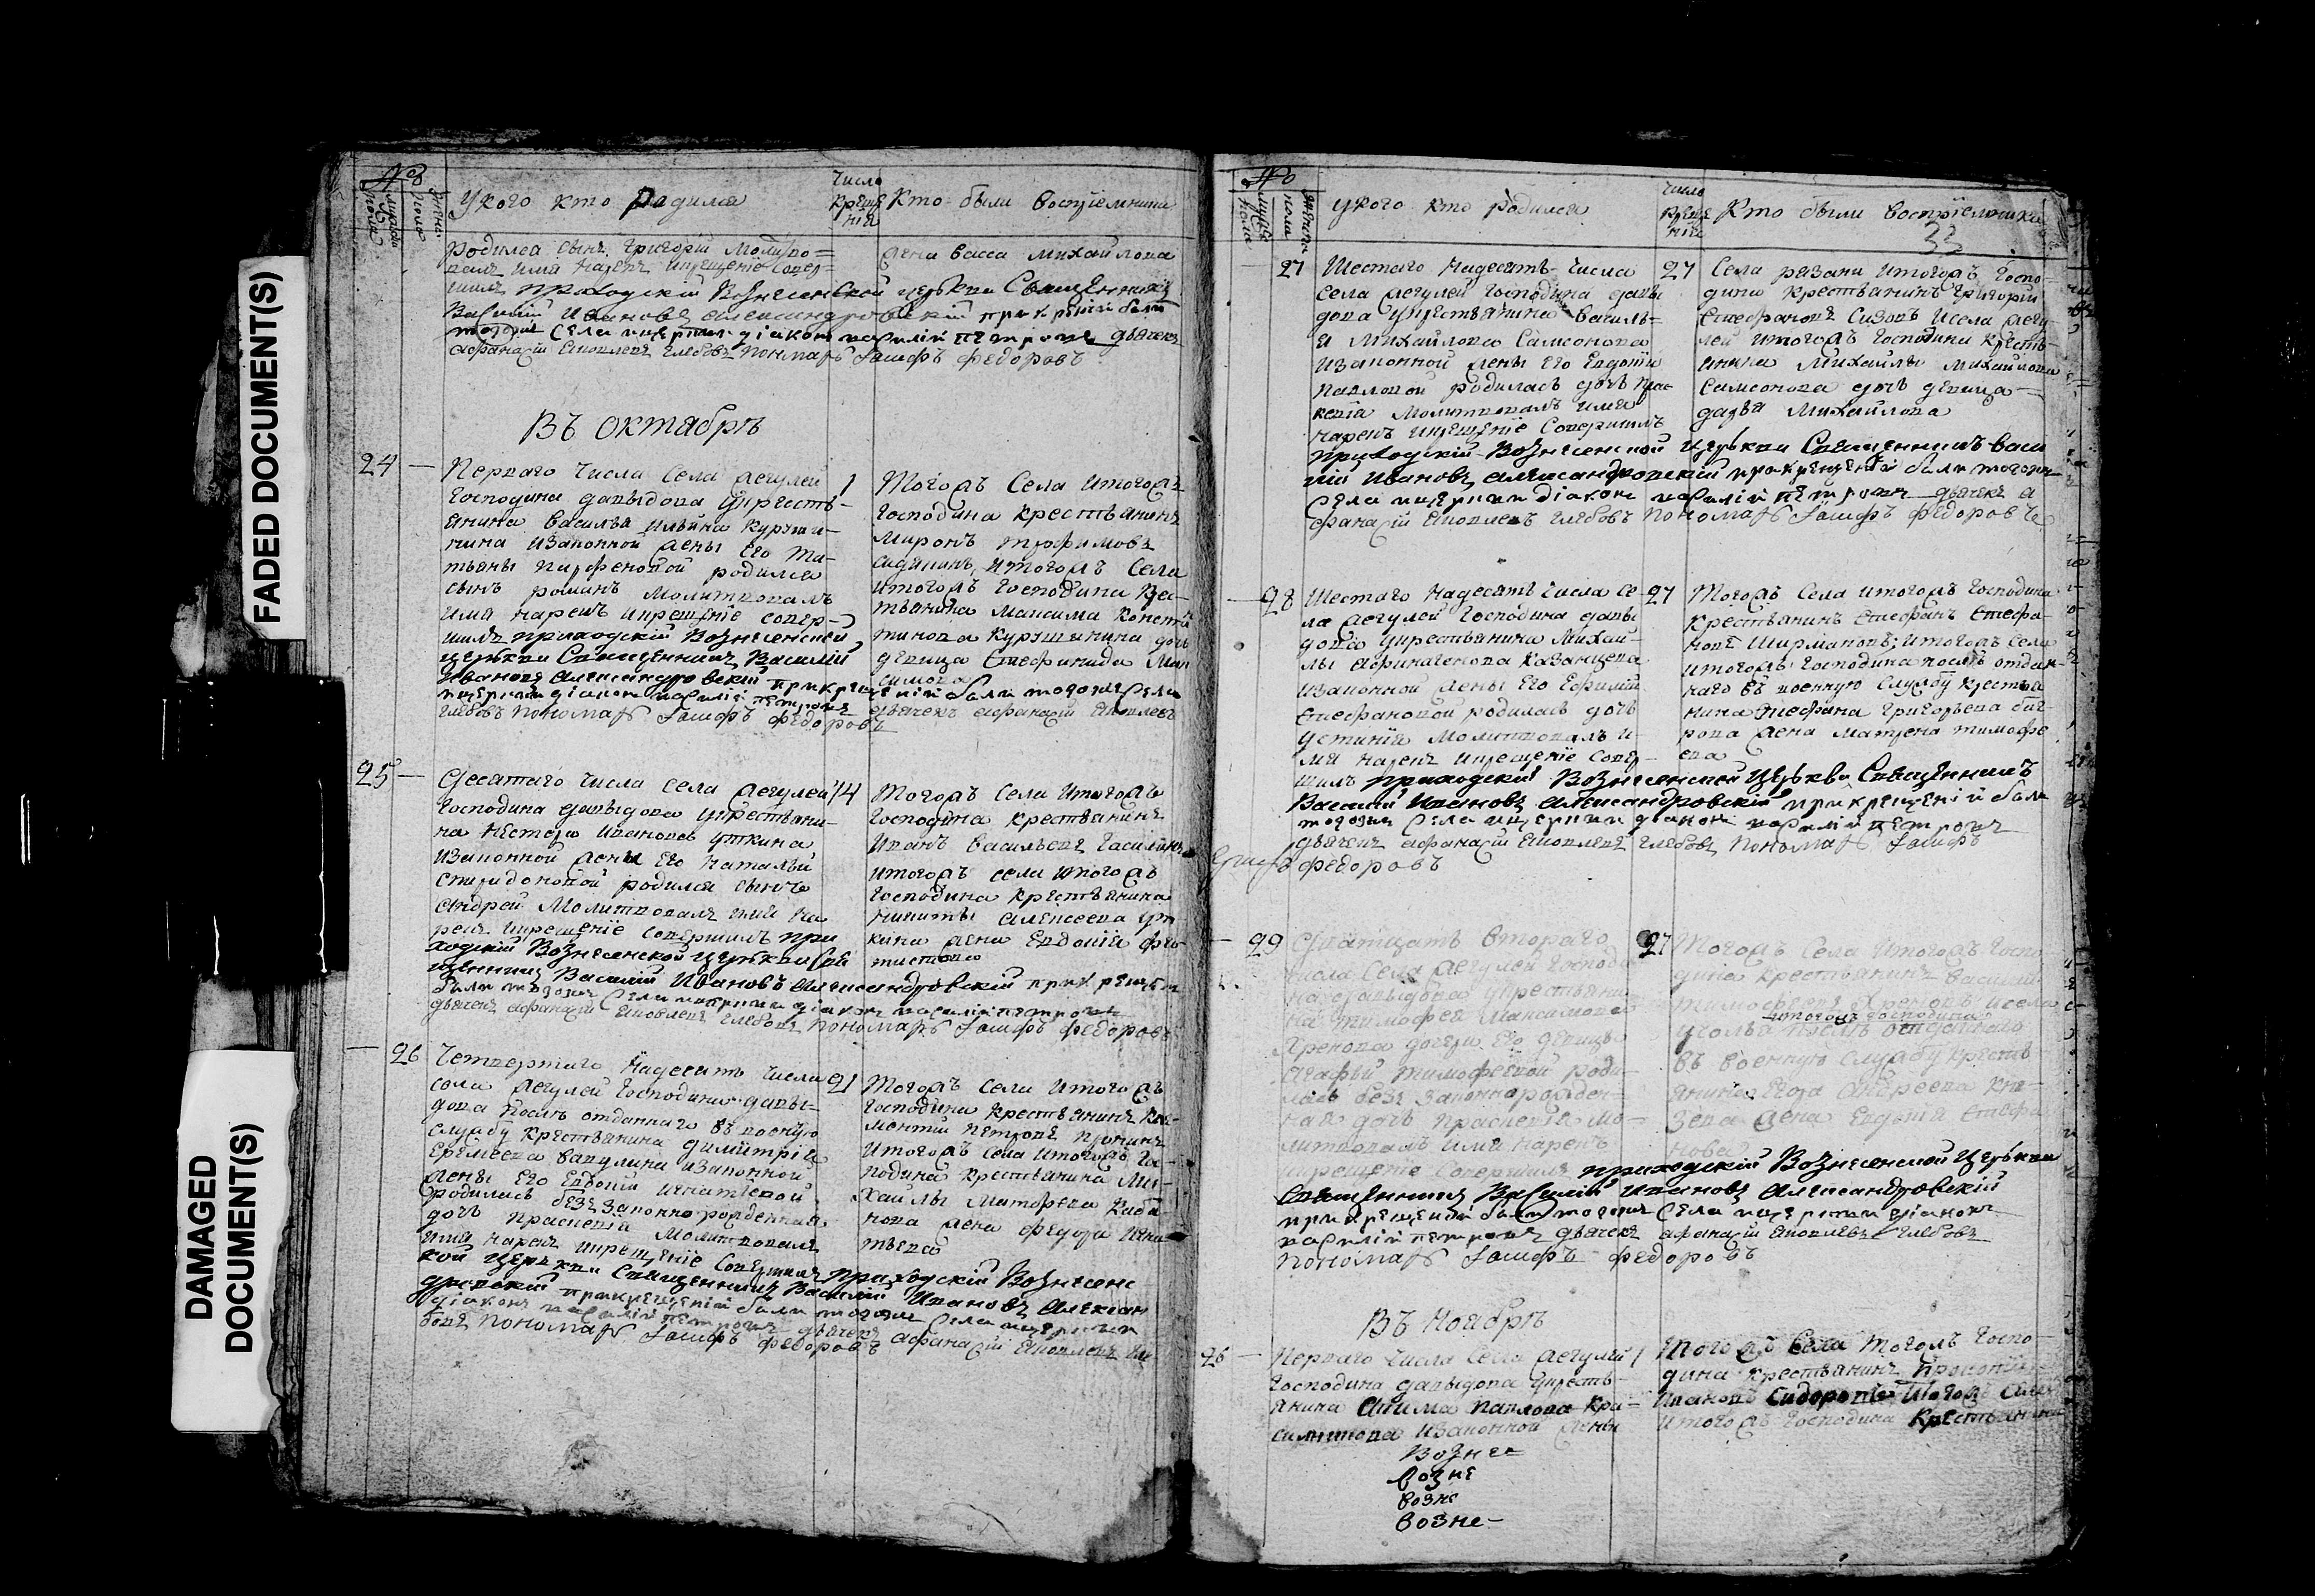 FADED DOCUMENT(S)
DAMAGED
DOCUMENT(S)
№
мужеска пола
женска пола
У кого кто родился
Число
крещенія
Кто были воспріемники
родился сынъ Григорій молитво=
валъ имя нареч и крещеніе совер=
шилъ приходскій Вознесенской церькви Священникъ
Василій Ивановъ Александровскій при крещеній были
тогожъ Села дїаконъ василій петровъ дьячекъ
афанасій яковлевъ глебовъ пономарь Іосифъ федоровъ
жена васса михайлова
Въ октябрѣ
24
Перваго числа села жегулей
господина давыдова у кресть-
янина василья ильина куруши-
нина и законной жены его та-
тьяны парфеновой родился
сынъ романъ молитвовалъ
имя нареч и крещеніе совер-
шилъ приходскій Вознесенской
церькви Священникъ Василій
Ивановъ Александровскій при крещеній были тогожъ Села
дїаконъ василій петровъ дьячекъ афанасій яковлевъ
глебовъ пономарь Іосифъ федоровъ
1
Тогожъ Села и тогожъ
господина крестьянинъ
миронъ трофимовъ
и тогожъ села
и тогожъ господина крес-
тьянина максима констан
тинова курушинина дочь
девица степанида мак
симова
25
Десятаго числа села жегулей
господина давыдова у крестьяни-
на нестера иванова уткина
и законной жены его натальи
спиридоновой родился сынъ
андрей молитвовалъ имя на
реч и крещеніе совершилъ при
ходскій Вознесенской церькви Свя
щенникъ Василій Ивановъ Александровскій при крещен
были тогожъ Села дїаконъ василій петровъ
дьячекъ афанасій яковлевъ глебовъ пономарь Іосифъ федоровъ
14
тогожъ села и тогожъ
господина крестьянинъ
иванъ васильевъ
и тогожъ села и тогожъ
господина крестьянина
никиты алексеева ут
кина жена евдокія фео
тистова
26
Четвертаго надесять числа
села жегулей господина давы=
дова послѣ отданнаго въ военную
службу крестьянина димитрія
еремеева вакулина и законной
жены его евдокіи игнатьевой
родилась безъ законно рожденная
дочь праскевія молитвовалъ
имя нареч и крещеніе совершилъ приходскій Вознесенс
кой церькви Священникъ Василій Ивановъ Алексан
дровскій при крещеній были тогожъ Села
дїаконъ василій петровъ дьячекъ афанасій яковлевъ гле
бовъ пономарь Іосифъ федоровъ
21
тогожъ села и тогожъ
господина крестьянинъ кле-
ментій петровъ пронинъ
и тогожъ села и тогожъ го-
подина крестьянина ми-
хайлы митофева каба
нова жена федора игна
тьева
№
мужеска пола
женска пола
У кого кто родился
Число
крещенія
Кто были воспріемники
33
27
Шестаго надесять числа
села жегулей господина давы
дова у крестьянина василь=
я михайлова самсонова
и законной жены его евдокіи
павловой родилась дочь прас
кевіа молитвовалъ имя
нареч и крещеніе совершилъ
приходскій Вознесенской церькви Священникъ васи
лій Ивановъ Александровскій при крещеній были тогожъ
Села дїаконъ василій петровъ дьячекъ а
фанасій яковлевъ глебовъ пономарь Іосифъ федоровъ
27
Села рязани и тогожъ госпо-
дина крестьянинъ григорій
стефановъ сизовъ и села жегу-
лей и тогожъ господина кресть-
янина михайлы михайлова
самсонова дочь девица
дарья михайлова
28
Шестаго надесять числа се-
ла жегулей господина давы
дова у крестьянина михай-
лы афиногенова казанцева
и законной жены его ефиміи
стефановой родилась дочь
устинія молитвовалъ и-
мя нареч и крещеніе совер-
шилъ приходскій Вознесенской церькви Священникъ
Василій Ивановъ Александровскій при крещеній были
тогожъ Села дїаконъ василій петровъ
дьячекъ афанасій яковлевъ глебовъ пономарь Іосифъ
федоровъ
27
Тогожъ села и тогожъ господина
крестьянинъ стефанъ стефа-
новъ ширмановъ; и тогожъ села
и тогожъ господина послѣ отдан-
наго въ военную службу кресть
нина стефана григорьева
жена матрена тимофе
ева
29
Двадцать втораго
числа села жегулей господи
на давыдова у крестьяни
на тимофея максимова
хренова дочери его девицы
агафьи тимофеевой роди-
лась безъ законнорожден-
ная дочь праскевія мо-
литвовалъ имя нареч
и крещеніе совершилъ приходскій Вознесенской церькви
Священникъ Василій Ивановъ Александровскій
при крещеній были тогожъ Села дїаконъ
василій петровъ дьячекъ афанасій яковлевъ глебовъ
пономарь Іосифъ федоровъ
27
Тогожъ села и тогожъ госпо
дина крестьянинъ василій
тимофеевъ хреновъ и села
и тогожъ господина
уколья послѣ отданнаго
въ военную службу кресть
янина егора андреева кня-
зева жена евдокія стефа
нова
Въ ноябрѣ
26
Перваго числа села жегулей
господина давыдова у кресть-
янина акима павлова кра-
сильникова и законной жены
1
тогожъ села тогожъ госпо-
дина крестьянинъ прокопій
ивановъ сидоровъ и тогожъ села
и тогожъ господина крестьянина
Вознес
возне
возне
возне-